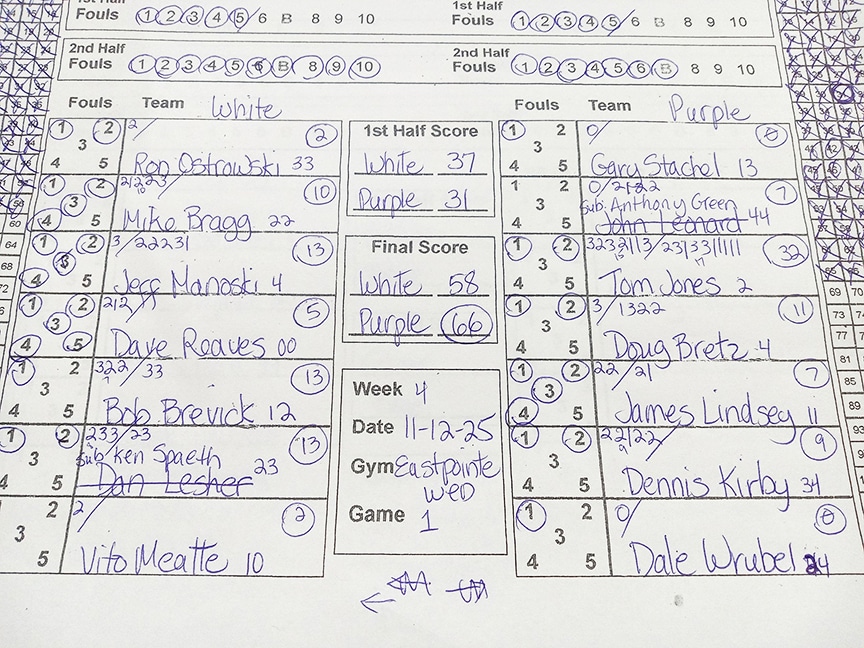 1st Half
Fouls 1 2 3 4 5 / 6 B 8 9 10
1st Half
Fouls 1 2 3 4 5 / 6 B 8 9 10
2nd Half
Fouls 1 2 3 4 5 6 B 8 9 10
2nd Half
Fouls 1 2 3 4 5 6 B 8 9 10
Fouls Team White
1 2 3 4 5
2/
2
Ron Ostrowski 33
1 2 3 4 5
10
Mike Bragg 22
1 2 3 4 5
3/22231
13
Jeff Manoski 4
1 2 3 4 5
5
Dave Reaves 00
1 2 3 4 5
322/33
13
Bob Brevick 12
1 2 3 4 5
233/23
13
sub: Ken Spaeth
Dan Lesher 23
2 3 5
2/
2
Vito Meatte 10
1st Half Score
White 37
Purple 31
Final Score
White 58
Purple 66
Week 4
Date 11-12-25
Gym Eastpointe
Wed
Game 1
Fouls Team Purple
1 2 3 4 5
0/
0
Gary Stachel 13
1 2 3 4 5
0/2122
7
sub: Anthony Green
John Leonard 44
1 2 3 4 5
32
Tom Jones 2
1 2 3 4 5
3/1322
11
Doug Bretz 4
1 2 3 4 5
22/21
7
James Lindsey 11
1 2 3 4 5
9
Dennis Kirby 34
1 2 3 4 5
0/
0
Dale Wrubel 24
60
64
68
72
69 70
73 74
77
81
85
89
93